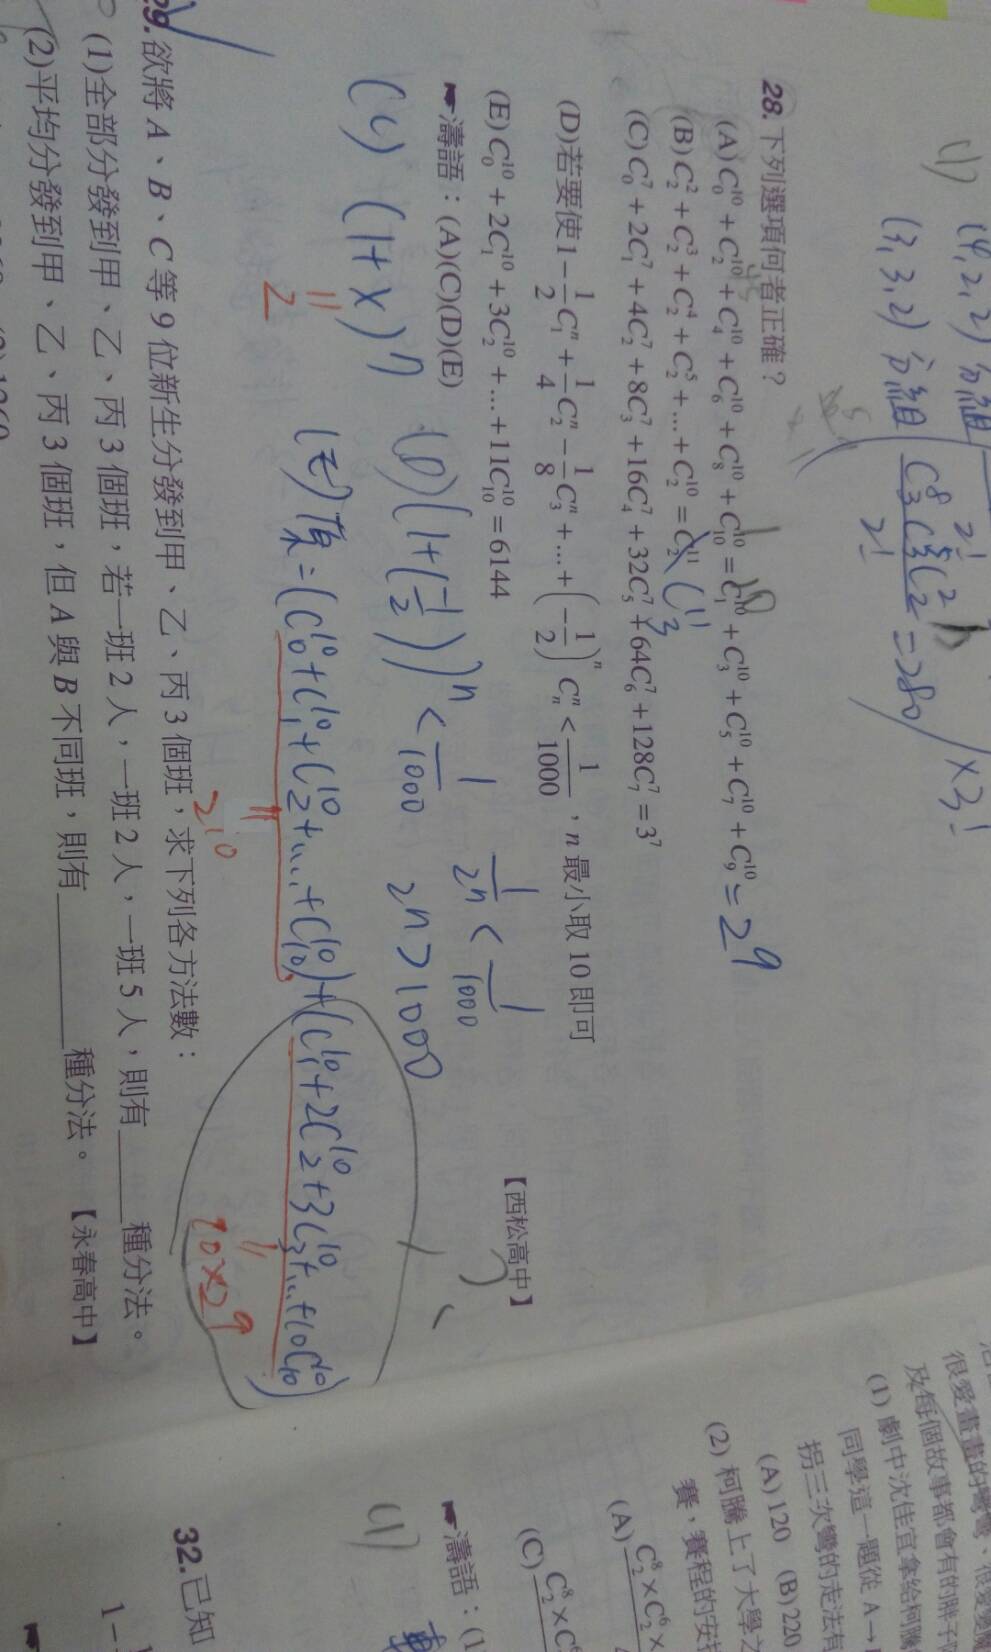 (4,2,2)分組
2!
(3,3,2)分組 C⁸₃C⁵₃C²₂ / 2! = 280 / ×3!
28.下列選項何者正確？
(A) C₀¹⁰ + C₂¹⁰ + C₄¹⁰ + C₆¹⁰ + C₈¹⁰ + C₁₀¹⁰ = C₁¹⁰ + C₃¹⁰ + C₅¹⁰ + C₇¹⁰ + C₉¹⁰ = 2⁹
(B) C₂² + C₂³ + C₂⁴ + C₂⁵ + ... + C₂¹⁰ = C₂¹¹ C₃¹¹
(C) C₀⁷ + 2C₁⁷ + 4C₂⁷ + 8C₃⁷ + 16C₄⁷ + 32C₅⁷ + 64C₆⁷ + 128C₇⁷ = 3⁷
(D)若要使 1 − 1/2 C₁ⁿ + 1/4 C₂ⁿ − 1/8 C₃ⁿ + ... + (−1/2)ⁿ Cₙⁿ < 1/1000，n 最小取 10 即可
(E) C₀¹⁰ + 2C₁¹⁰ + 3C₂¹⁰ + ... + 11C₁₀¹⁰ = 6144
【西松高中】
☛濤語：(A)(C)(D)(E)
(1+x)ⁿ
=
2
(D) (1+(−1/2))ⁿ < 1/1000
1/2ⁿ < 1/1000
2ⁿ > 1000
(E) 原 = (C₀¹⁰ + C₁¹⁰ + C₂¹⁰ + ... + C₁₀¹⁰) + (C₁¹⁰ + 2C₂¹⁰ + 3C₃¹⁰ + ... + 10C₁₀¹⁰)
= 2¹⁰
= 10×2⁹
29.欲將 A、B、C 等 9 位新生分發到甲、乙、丙 3 個班，求下列各方法數：
(1)全部分發到甲、乙、丙 3 個班，若一班 2 人，一班 2 人，一班 5 人，則有______種分法。
(2)平均分發到甲、乙、丙 3 個班，但 A 與 B 不同班，則有______種分法。【永春高中】
很愛畫畫的彎彎、很愛
及每個故事都會有的胖子
(1) 劇中沈佳宜拿給柯
同學這一題從 A→
拐三次彎的走法有
(A) 120 (B) 220
(2) 柯騰上了大學之
賽，賽程的安
(A) C₂⁸ × C₂⁶ ×
(C) C₂⁸ × C₂⁶
☛濤語：(1)
32.已知
1−